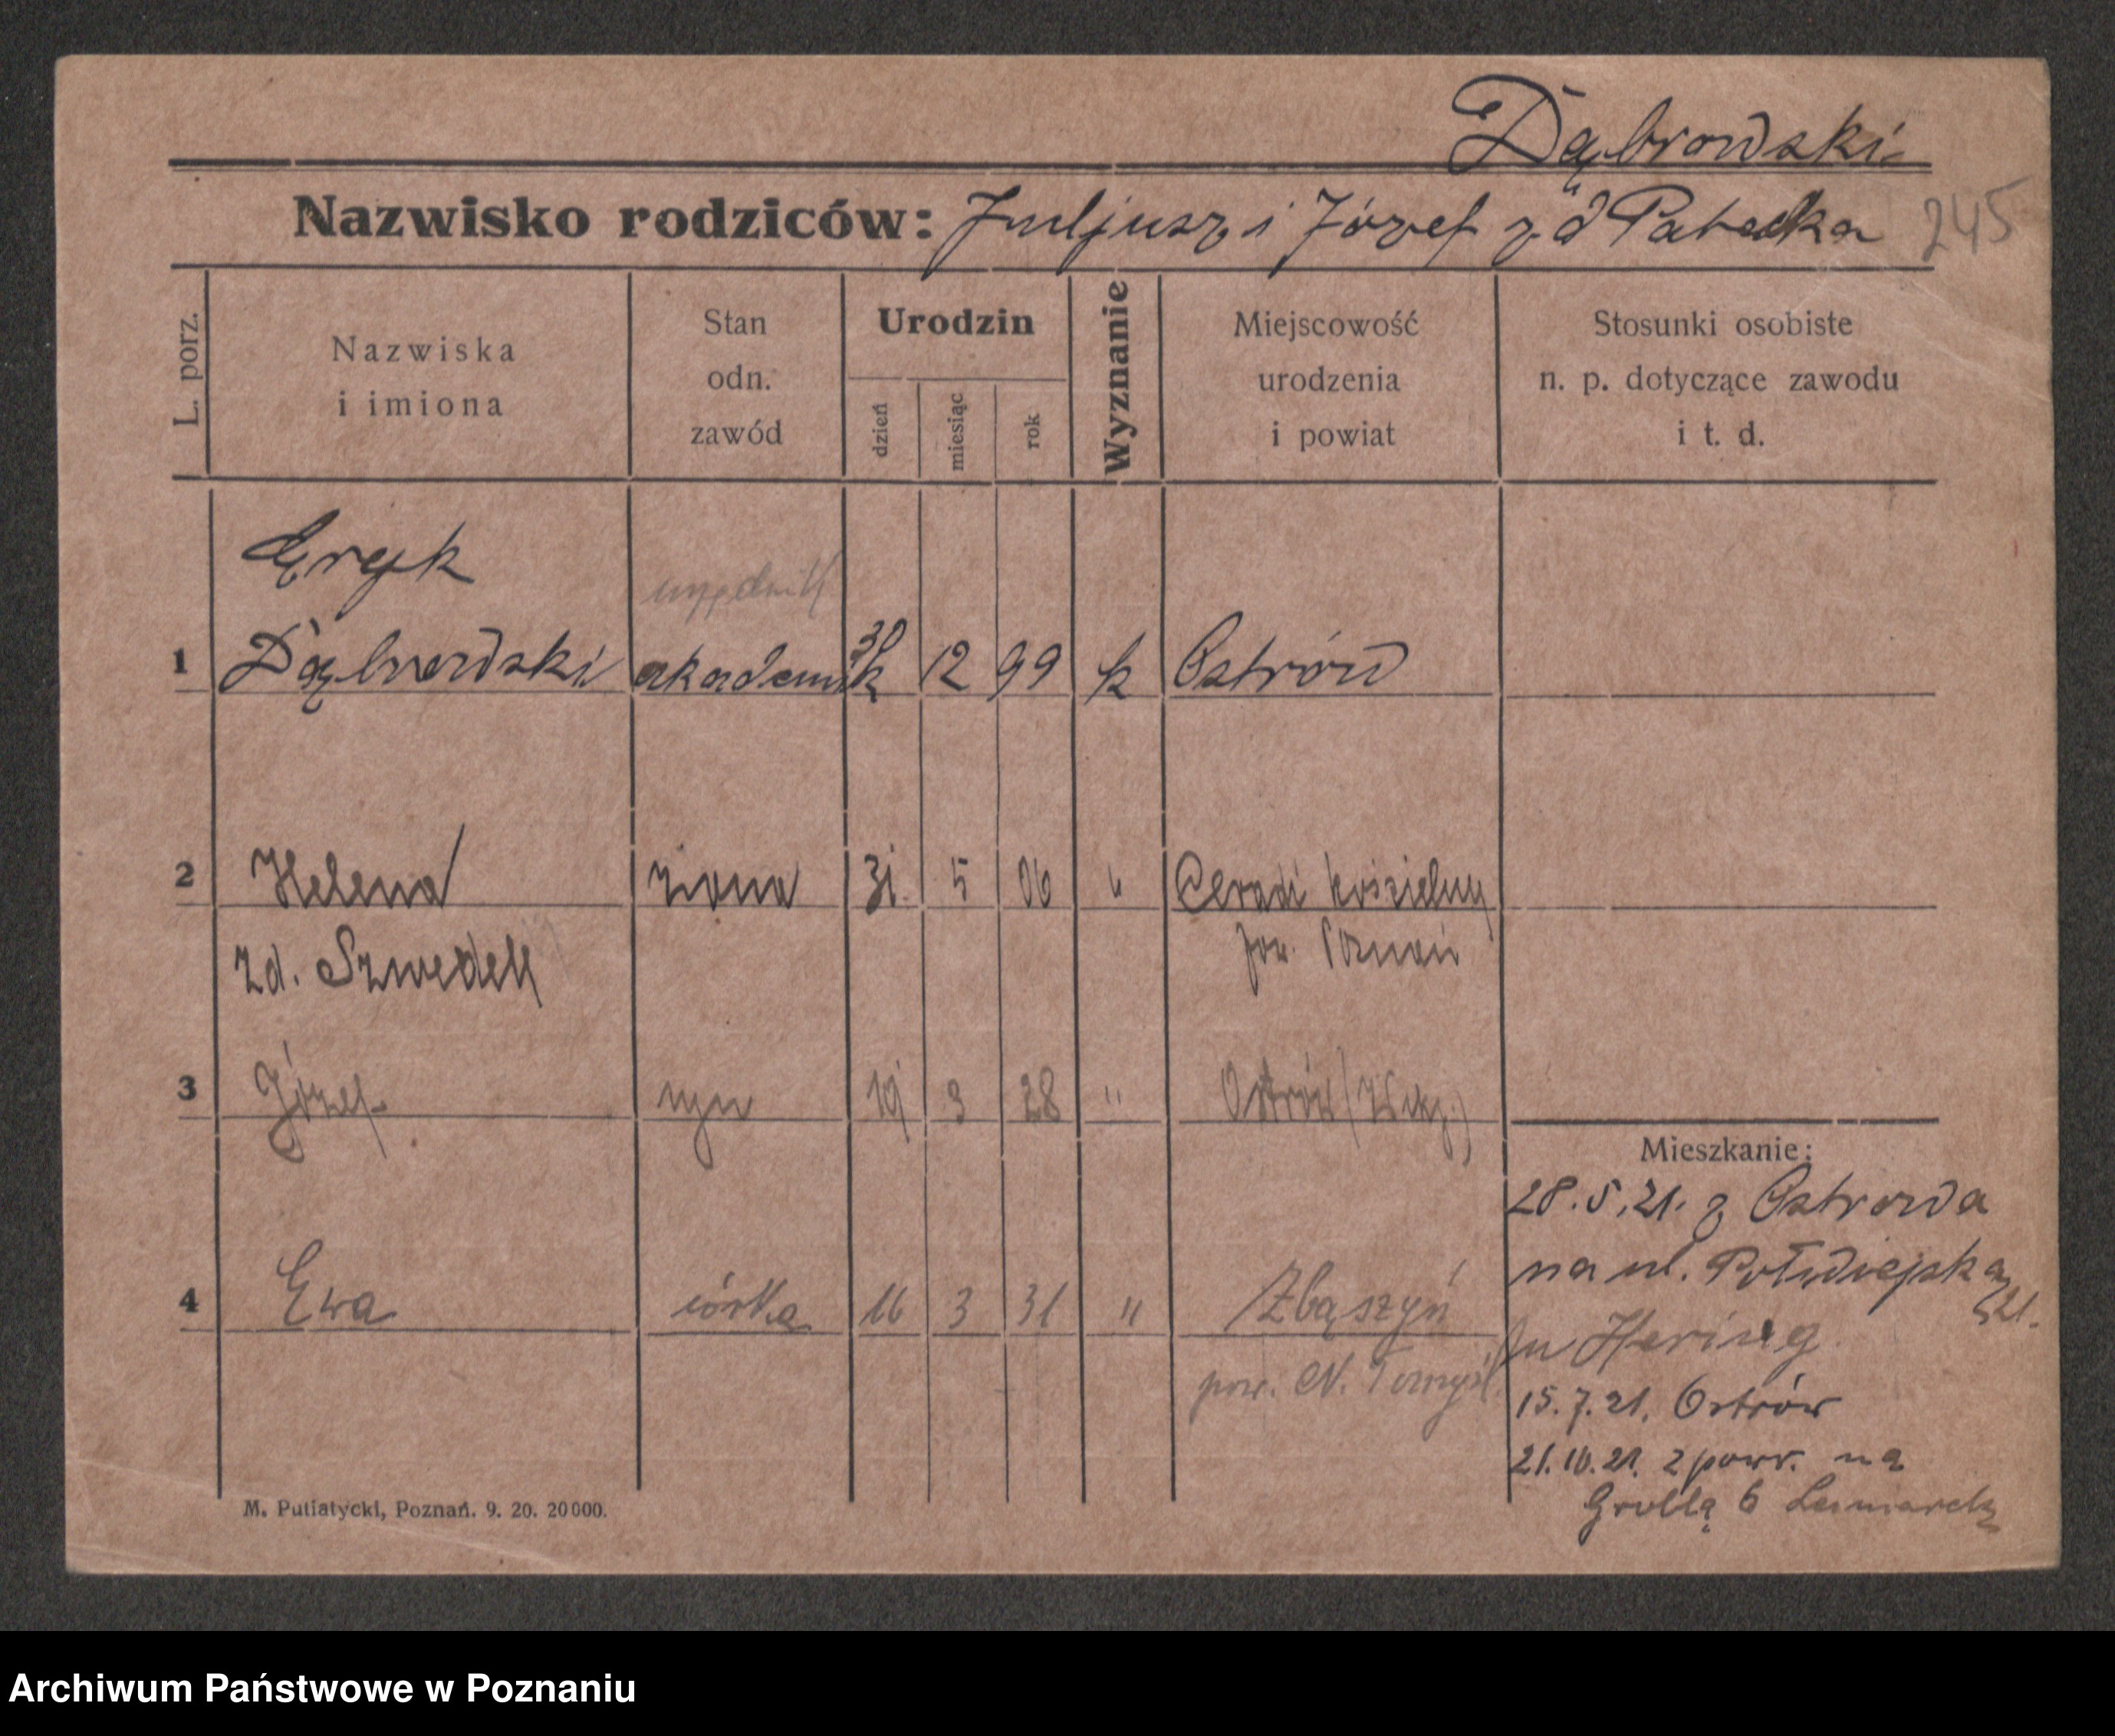 Dąbrowski
Nazwisko rodziców: Juljusz i Józef z d Patecka 245
L. porz.
Nazwiska i imiona
Stan odn. zawód
Urodzin
dzień miesiąc rok
Wyznanie
Miejscowość urodzenia i powiat
Stosunki osobiste n. p. dotyczące zawodu i t. d.
Eryk
urzędnik
1 Dąbrowski akademik 30 12 99 k Ostrów
2 Helena żona 31. 5 06 " Ceradz kościelny
pow. Poznań
zd. Szwedek
3 Józef syn 19 3 28 " Ostrów (Wlkp.)
4 Ewa córka 16 3 31 " Zbąszyń
pow. N. Tomyśl.
Mieszkanie:
28.5.21. z Ostrowa
na ul. Półwiejska
21.
u Hering
15.7.21. Ostrów
21.10.21. z powr. na
Groblą 6
M. Putiatycki, Poznań. 9. 20. 20000.
Archiwum Państwowe w Poznaniu